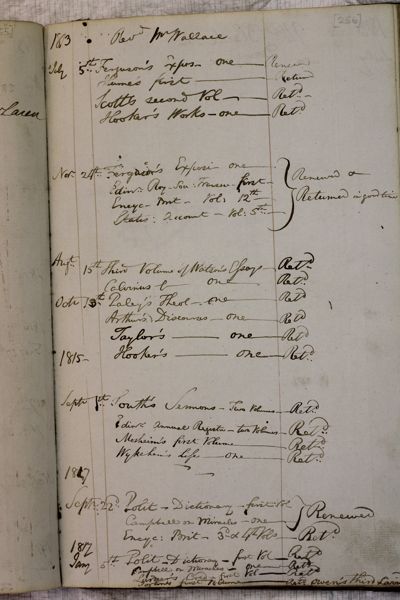 [256]
1813 Revd Mr Wallace
July 5th Ferguson's Expos - one Renewed
Hume's first Return
Scott's second Vol Retd
Hooker's Works - one Retd
Novr 24th Ferguson's Exposi one
Edinr Roy. Soc. Transn - first
Encyc - Brit - Vol: 12th
Statis: Account - Vol: 5th
Renewed &
Returned in good time
Augt 15th Third Volume of Watson's Essays Retd
Calvinus one Retd
Octr 13th Paley's Theol - one Retd
Arthur's Discourses - one Retd
Taylor's one Retd
1815 - Hooker's one Retd
Septr South's Sermons - Two Volumes - Retd
Edinr Annual Register - two Volumes Retd
Mosheim's first Volume Retd
Wykeham's Life - one Retd
1817
Septr 22d Polit - Dictionary - first Vol
Campbell on Miracles - one
Renewed
Encyc: Brit - 3d & 4th Vols - Retd
1817
Jany 5th Polit - Dictionary - first Vol Retd
Campbell on Miracles - one Retd
first Vol Retd
first Volume
Laren